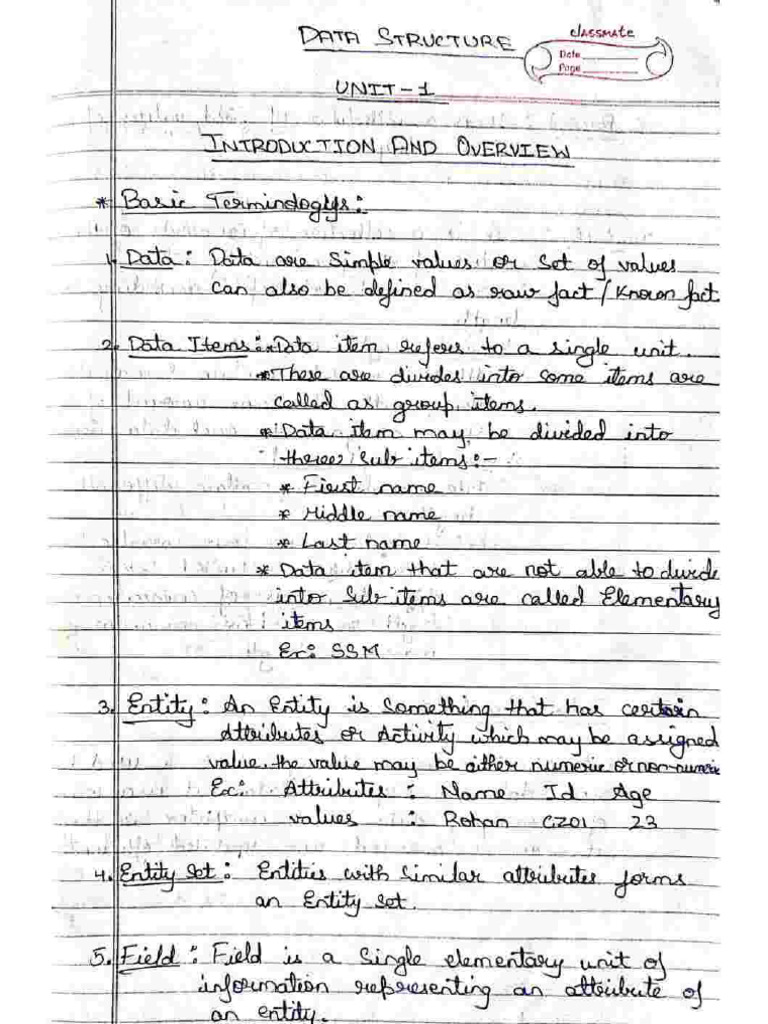 DATA STRUCTURE
classmate
Date
Page
UNIT-1
INTRODUCTION AND OVERVIEW
* Basic Terminologys:
1. Data: Data are simple values or set of values
can also be defined as raw fact/known fact
2. Data Items: * Data item refers to a single unit.
* These are divides into some items are
called as group items.
* Data item may be divided into
three sub items:-
* First name
* Middle name
* Last name
* Data item that are not able to divide
into sub items are called Elementary
items
Ex: SSM
3. Entity: An Entity is something that has certain
Attributes or Activity which may be assigned
value, the value may be either numeric or non-numeric
Ex: Attributes : Name Id Age
values : Rohan CZ01 23
4. Entity Set: Entities with similar attributes forms
an Entity set.
5. Field: Field is a single elementary unit of
information representing an attribute of
an entity.